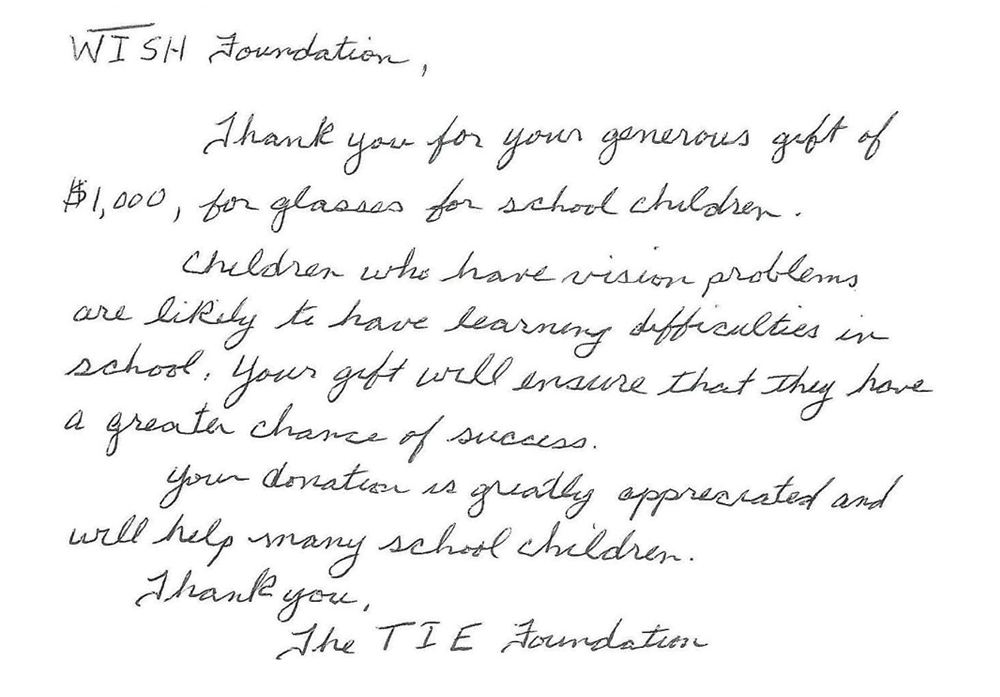 WISH Foundation,
Thank you for your generous gift of
$1,000, for glasses for school children.
Children who have vision problems
are likely to have learning difficulties in
school. Your gift will ensure that they have
a greater chance of success.
Your donation is greatly appreciated and
will help many school children.
Thank you,
The TIE Foundation